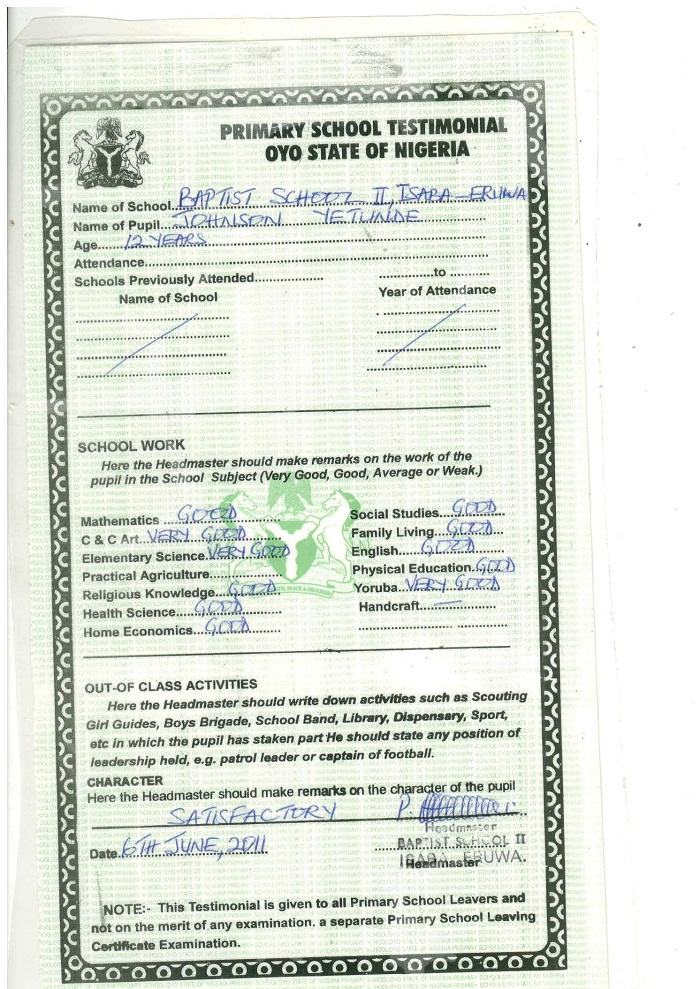 PRIMARY SCHOOL TESTIMONIAL
OYO STATE OF NIGERIA
Name of School BAPTIST SCHOOL II, ISABA ERUWA
Name of Pupil JOHNSON YETUNDE
Age 12 YEARS
Attendance
Schools Previously Attended to
Name of School Year of Attendance
SCHOOL WORK
Here the Headmaster should make remarks on the work of the
pupil in the School Subject (Very Good, Good, Average or Weak.)
Mathematics GOOD
C & C Art VERY GOOD
Elementary Science VERY GOOD
Practical Agriculture
Religious Knowledge GOOD
Health Science GOOD
Home Economics GOOD
Social Studies GOOD
Family Living GOOD
English GOOD
Physical Education GOOD
Yoruba VERY GOOD
Handcraft —
OUT-OF CLASS ACTIVITIES
Here the Headmaster should write down activities such as Scouting
Girl Guides, Boys Brigade, School Band, Library, Dispensary, Sport,
etc in which the pupil has staken part He should state any position of
leadership held, e.g. patrol leader or captain of football.
CHARACTER
Here the Headmaster should make remarks on the character of the pupil
SATISFACTORY
Headmaster
BAPTIST SCHOOL II
ISABA ERUWA.
Date 6TH JUNE, 2011
Headmaster
NOTE:- This Testimonial is given to all Primary School Leavers and
not on the merit of any examination. a separate Primary School Leaving
Certificate Examination.